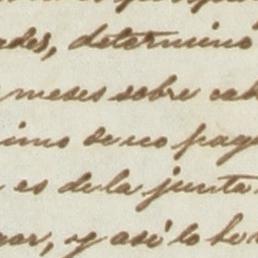 ades, determinó
meses sobre cab
imo se no pag
es de la junta
gar, y asé lo hor